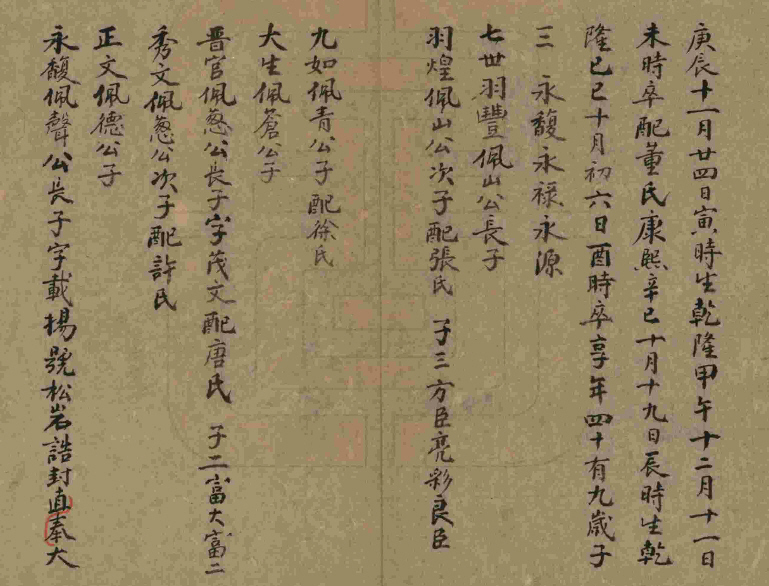 庚辰十一月廿四日寅時生乾隆甲午十二月十一日
未時卒配董氏康熙辛巳十月十九日辰時生乾
隆己巳十月初六日酉時卒享年四十有九歲子
三 永馥永祿永源
七世羽豐佩山公長子
羽煌佩山公次子配張氏 子三方臣亮彩良臣
九如佩青公子配徐氏
大生佩蒼公子
晋官佩蔥公長子字茂文配唐氏 子二富大富二
秀文佩蔥公次子配許氏
正文佩德公子
永馥佩聲公長子字載揚號松岩誥封直奉大